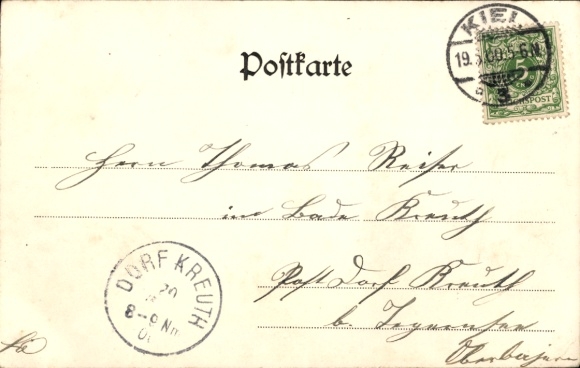 Postkarte
KIEL
19.5.00.5-6N.
3
5
REICHSPOST
Herrn Thomas Reiser
in Bade Kreuth
Post Dorf Kreuth
b. Tegernsee
Oberbayern
DORF KREUTH
20
8-9 Nm
00